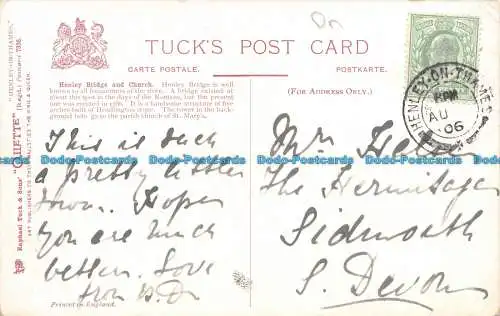 "HENLEY-ON-THAMES."
(Regd.) Postcard 7336.
Raphael Tuck & Sons' "OILETTE"
ART PUBLISHERS TO THEIR MAJESTIES THE KING & QUEEN.
TUCK'S POST CARD
CARTE POSTALE. POSTKARTE.
Henley Bridge and Church. Henley Bridge is well
known to all houseboaters of the river. A bridge existed at
about this spot in the days of the Romans, but the present
one was erected in 1786. It is a handsome structure of five
arches built of Headington stone. The tower in the back-
ground belongs to the parish church of St. Mary's.
(FOR ADDRESS ONLY.)
HENLEY-ON-THAMES
PM
AU
06
This is such
a pretty little
town. Hope
you are much
better. Love
from
Mr
The Hermitage
Sidmouth
S. Devon
Printed in England.
Dodo-Postcards Dodo-Postcards Dodo-Postcards Dodo-Postcards